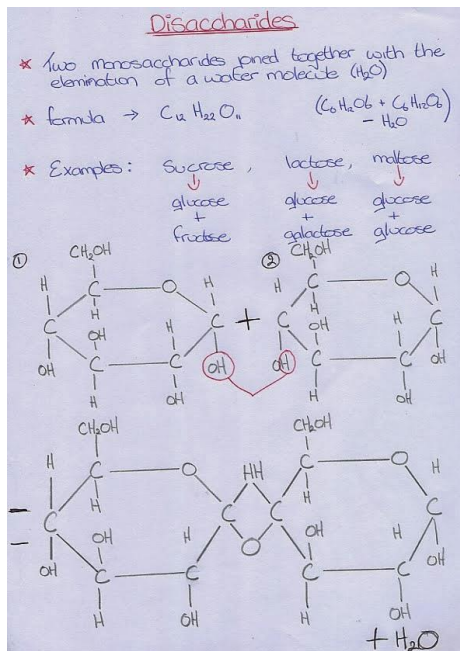 Disaccharides
* Two monosaccharides joined together with the
elemination of a water molecule (H₂O)
* formula → C₁₂ H₂₂ O₁₁ (C₆H₁₂O₆ + C₆H₁₂O₆)
- H₂O
* Examples: Sucrose, lactose, maltose
↓ ↓ ↓
glucose glucose glucose
+ + +
fructose galactose glucose
① CH₂OH ② CH₂OH
H C O H H C O H
H H
C OH H C + C OH H C
OH C C OH OH C C OH
H OH H OH
CH₂OH CH₂OH
H C O HH C O H
H H
= C OH H C C OH H C
OH C C O C C OH
H OH H OH
+ H₂O